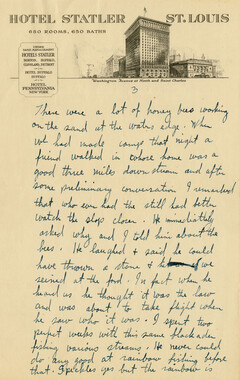 HOTEL STATLER ST. LOUIS
650 ROOMS, 650 BATHS
UNDER SAME MANAGEMENT
HOTELS STATLER
BOSTON, BUFFALO,
CLEVELAND, DETROIT
HOTEL BUFFALO
BUFFALO
HOTEL
PENNSYLVANIA
NEW YORK
Washington Avenue at Ninth and Saint Charles
3
There were a lot of honey bees working
on the sand at the waters edge. When
we had made camp that night a
friend walked in whose home was a
good three miles down stream and after
some preliminary conversation I remarked
that who ever had the still had better
watch the slop closer. He immediately
asked why and I told him about the
bees. He laughed & said he could
have thrown a stone & hit us if we
seined at the ford. In fact when he
heard us he thought it was the law
and was about to take flight when
he saw who it was. I spent two
perfect weeks with this same blockader
fishing various streams. He never could
do any good at rainbow fishing before
that. Speckles yes but the rainbow is